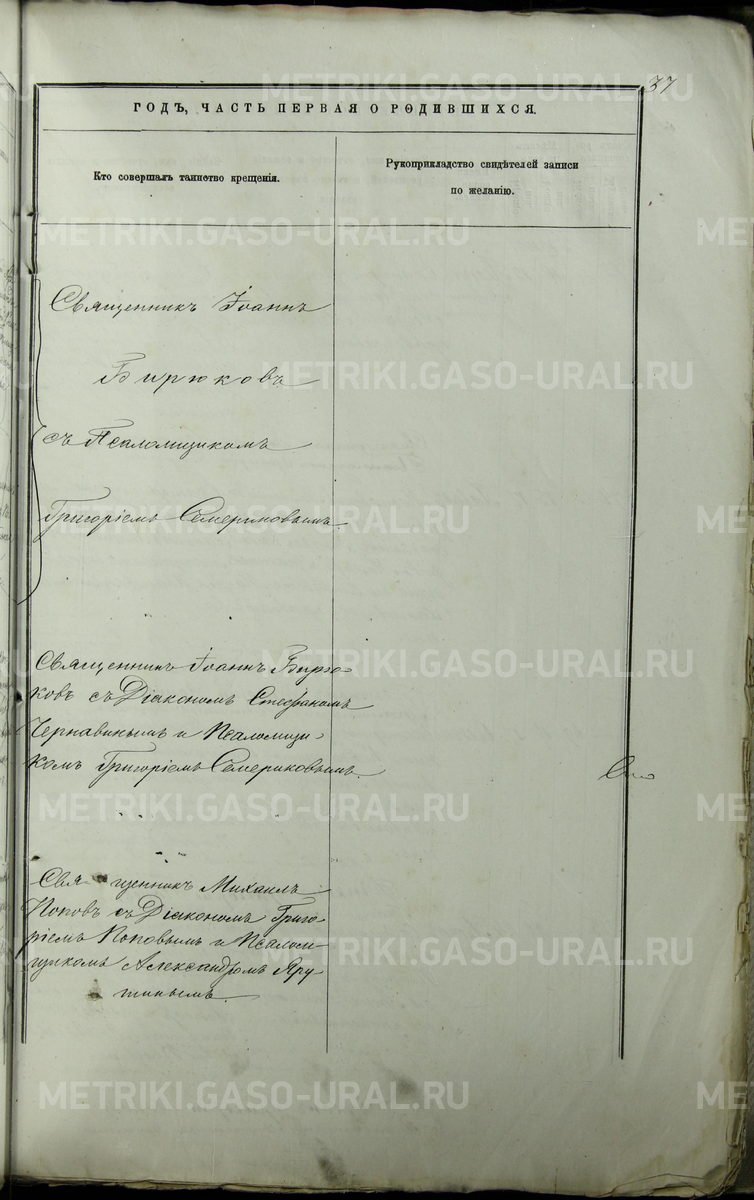 37
ГОДЪ, ЧАСТЬ ПЕРВАЯ О РОДИВШИХСЯ.
Кто совершалъ таинство крещенія.
Рукоприкладство свидѣтелей записи
по желанію.
Священникъ Іоаннъ
Бирюковъ
съ Псаломщикомъ
Григоріемъ Семериковымъ.
Священникъ Іоаннъ Бирю-
ковъ съ Діакономъ Стефаномъ
Чернавинымъ и Псаломщи-
комъ Григоріемъ Семериковымъ.
Священникъ Михаилъ
Поповъ съ Діакономъ Григо-
ріемъ Поповымъ и Псалом-
щикомъ Александромъ Яру-
шинымъ.
METRIKI.GASO-URAL.RU